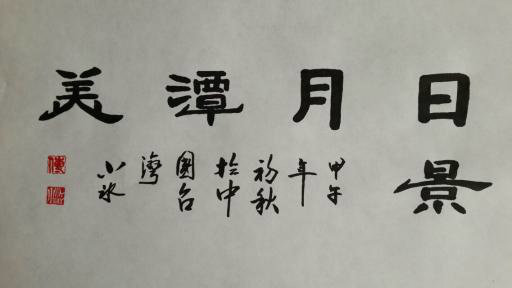 日月潭美
景
甲午
年
初秋
於中
國台
灣
小冰